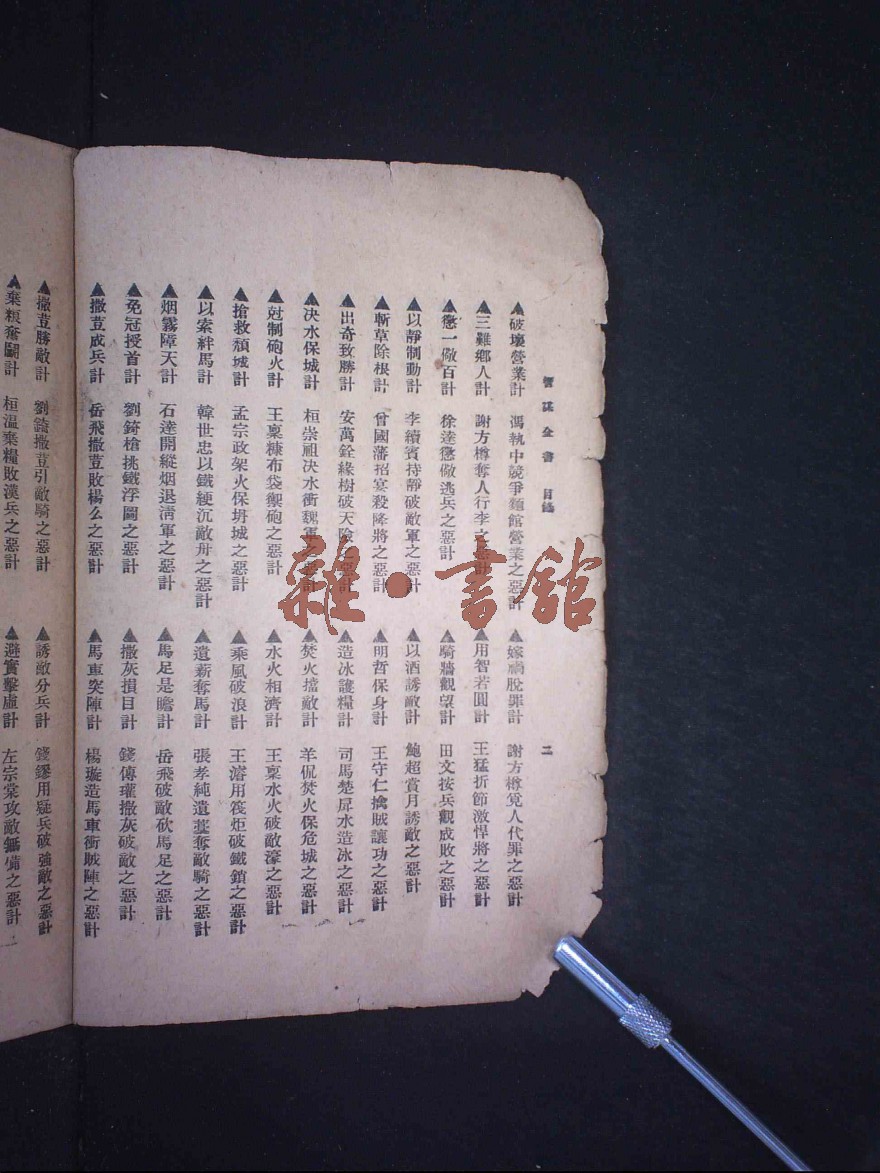 智謀全書 目錄 二
▲破壞營業計 馮執中競爭麵館營業之惡計 ▲嫁禍脫罪計 謝方樽覓人代罪之惡計
▲三難鄉人計 謝方樽奪人行李之惡計 ▲用智若圓計 王猛折節激悍將之惡計
▲懲一儆百計 徐達懲儆逃兵之惡計 ▲騎牆觀望計 田文按兵觀成敗之惡計
▲以靜制動計 李續賓持靜破敵軍之惡計 ▲以酒誘敵計 鮑超賞月誘敵之惡計
▲斬草除根計 曾國藩招宴殺降將之惡計 ▲明哲保身計 王守仁擒賊讓功之惡計
▲出奇致勝計 安萬銓緣樹破天險之惡計 ▲造冰護糧計 司馬楚屃水造冰之惡計
▲决水保城計 桓崇祖决水衝魏軍之惡計 ▲焚火擋敵計 羊侃焚火保危城之惡計
▲尅制砲火計 王稟糠布袋禦砲之惡計 ▲水火相濟計 王稟水火破敵濠之惡計
▲搶救頹城計 孟宗政架火保坍城之惡計 ▲乘風破浪計 王濬用筏炬破鐵鎖之惡計
▲以索絆馬計 韓世忠以鐵綆沉敵舟之惡計 ▲遺薪奪馬計 張孝純遺薑奪敵騎之惡計
▲烟霧障天計 石達開縱烟退淸軍之惡計 ▲馬足是瞻計 岳飛破敵砍馬足之惡計
▲免冠授首計 劉錡槍挑鐵浮圖之惡計 ▲撒灰損目計 錢傳瓘撒灰破敵之惡計
▲撒荳成兵計 岳飛撒荳敗楊么之惡計 ▲馬車突陣計 楊璇造馬車衝賊陣之惡計
▲撒荳勝敵計 劉錡撒荳引敵騎之惡計 ▲誘敵分兵計 錢鏐用疑兵破強敵之惡計
▲棄糧奮鬬計 桓溫棄糧敗漢兵之惡計 ▲避實擊虛計 左宗棠攻敵無備之惡計
雜·書館